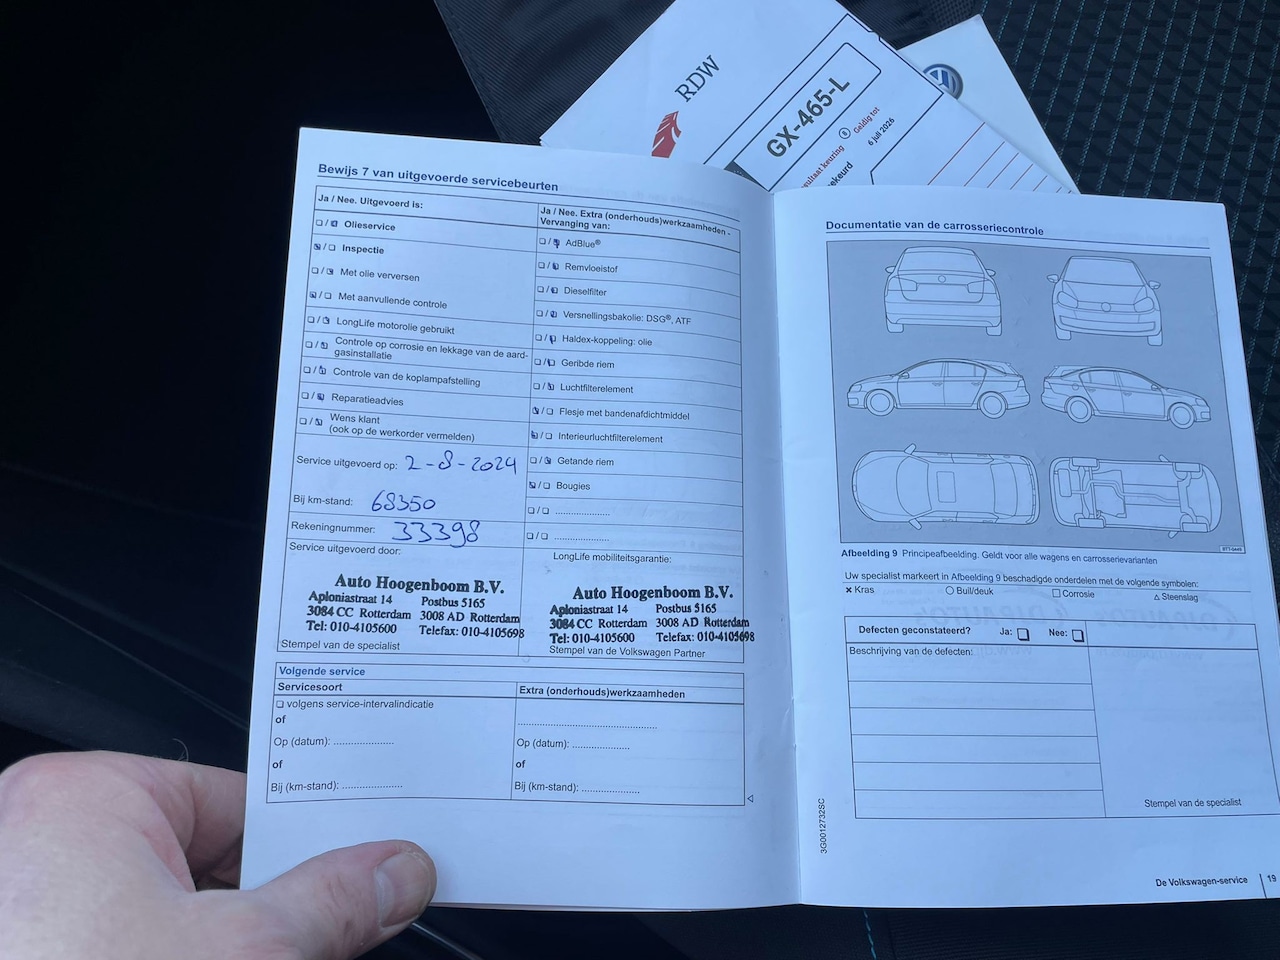 RDW
GX-465-L
Geldig tot
6 juli 2026
Bewijs 7 van uitgevoerde servicebeurten
Ja / Nee. Uitgevoerd is:
❏ / ❏ Olieservice
❏ / ❏ Inspectie
❏ / ❏ Met olie verversen
❏ / ❏ Met aanvullende controle
❏ / ❏ LongLife motorolie gebruikt
❏ / ❏ Controle op corrosie en lekkage van de aard-
gasinstallatie
❏ / ❏ Controle van de koplampafstelling
❏ / ❏ Reparatieadvies
❏ / ❏ Wens klant
(ook op de werkorder vermelden)
Service uitgevoerd op: 2-8-2024
Bij km-stand: 68350
Rekeningnummer: 33398
Service uitgevoerd door:
Auto Hoogenboom B.V.
Aploniastraat 14 Postbus 5165
3084 CC Rotterdam 3008 AD Rotterdam
Tel: 010-4105600 Telefax: 010-4105698
Stempel van de specialist
Ja / Nee. Extra (onderhouds)werkzaamheden -
Vervanging van:
❏ / ❏ AdBlue®
❏ / ❏ Remvloeistof
❏ / ❏ Dieselfilter
❏ / ❏ Versnellingsbakolie: DSG®, ATF
❏ / ❏ Haldex-koppeling: olie
❏ / ❏ Geribde riem
❏ / ❏ Luchtfilterelement
❏ / ❏ Flesje met bandenafdichtmiddel
❏ / ❏ Interieurluchtfilterelement
❏ / ❏ Getande riem
❏ / ❏ Bougies
❏ / ❏ ....................
❏ / ❏ ....................
LongLife mobiliteitsgarantie:
Auto Hoogenboom B.V.
Aploniastraat 14 Postbus 5165
3084 CC Rotterdam 3008 AD Rotterdam
Tel: 010-4105600 Telefax: 010-4105698
Stempel van de Volkswagen Partner
Volgende service
Servicesoort
❏ volgens service-intervalindicatie
of
Op (datum): ......................
of
Bij (km-stand): ......................
Extra (onderhouds)werkzaamheden
..................................................
Op (datum): .....................
of
Bij (km-stand): .....................
Documentatie van de carrosseriecontrole
Afbeelding 9 Principeafbeelding. Geldt voor alle wagens en carrosserievarianten
Uw specialist markeert in Afbeelding 9 beschadigde onderdelen met de volgende symbolen:
× Kras ○ Buil/deuk □ Corrosie △ Steenslag
Defecten geconstateerd? Ja: ❏ Nee: ❏
Beschrijving van de defecten:
Stempel van de specialist
3G0012732SC
De Volkswagen-service 19